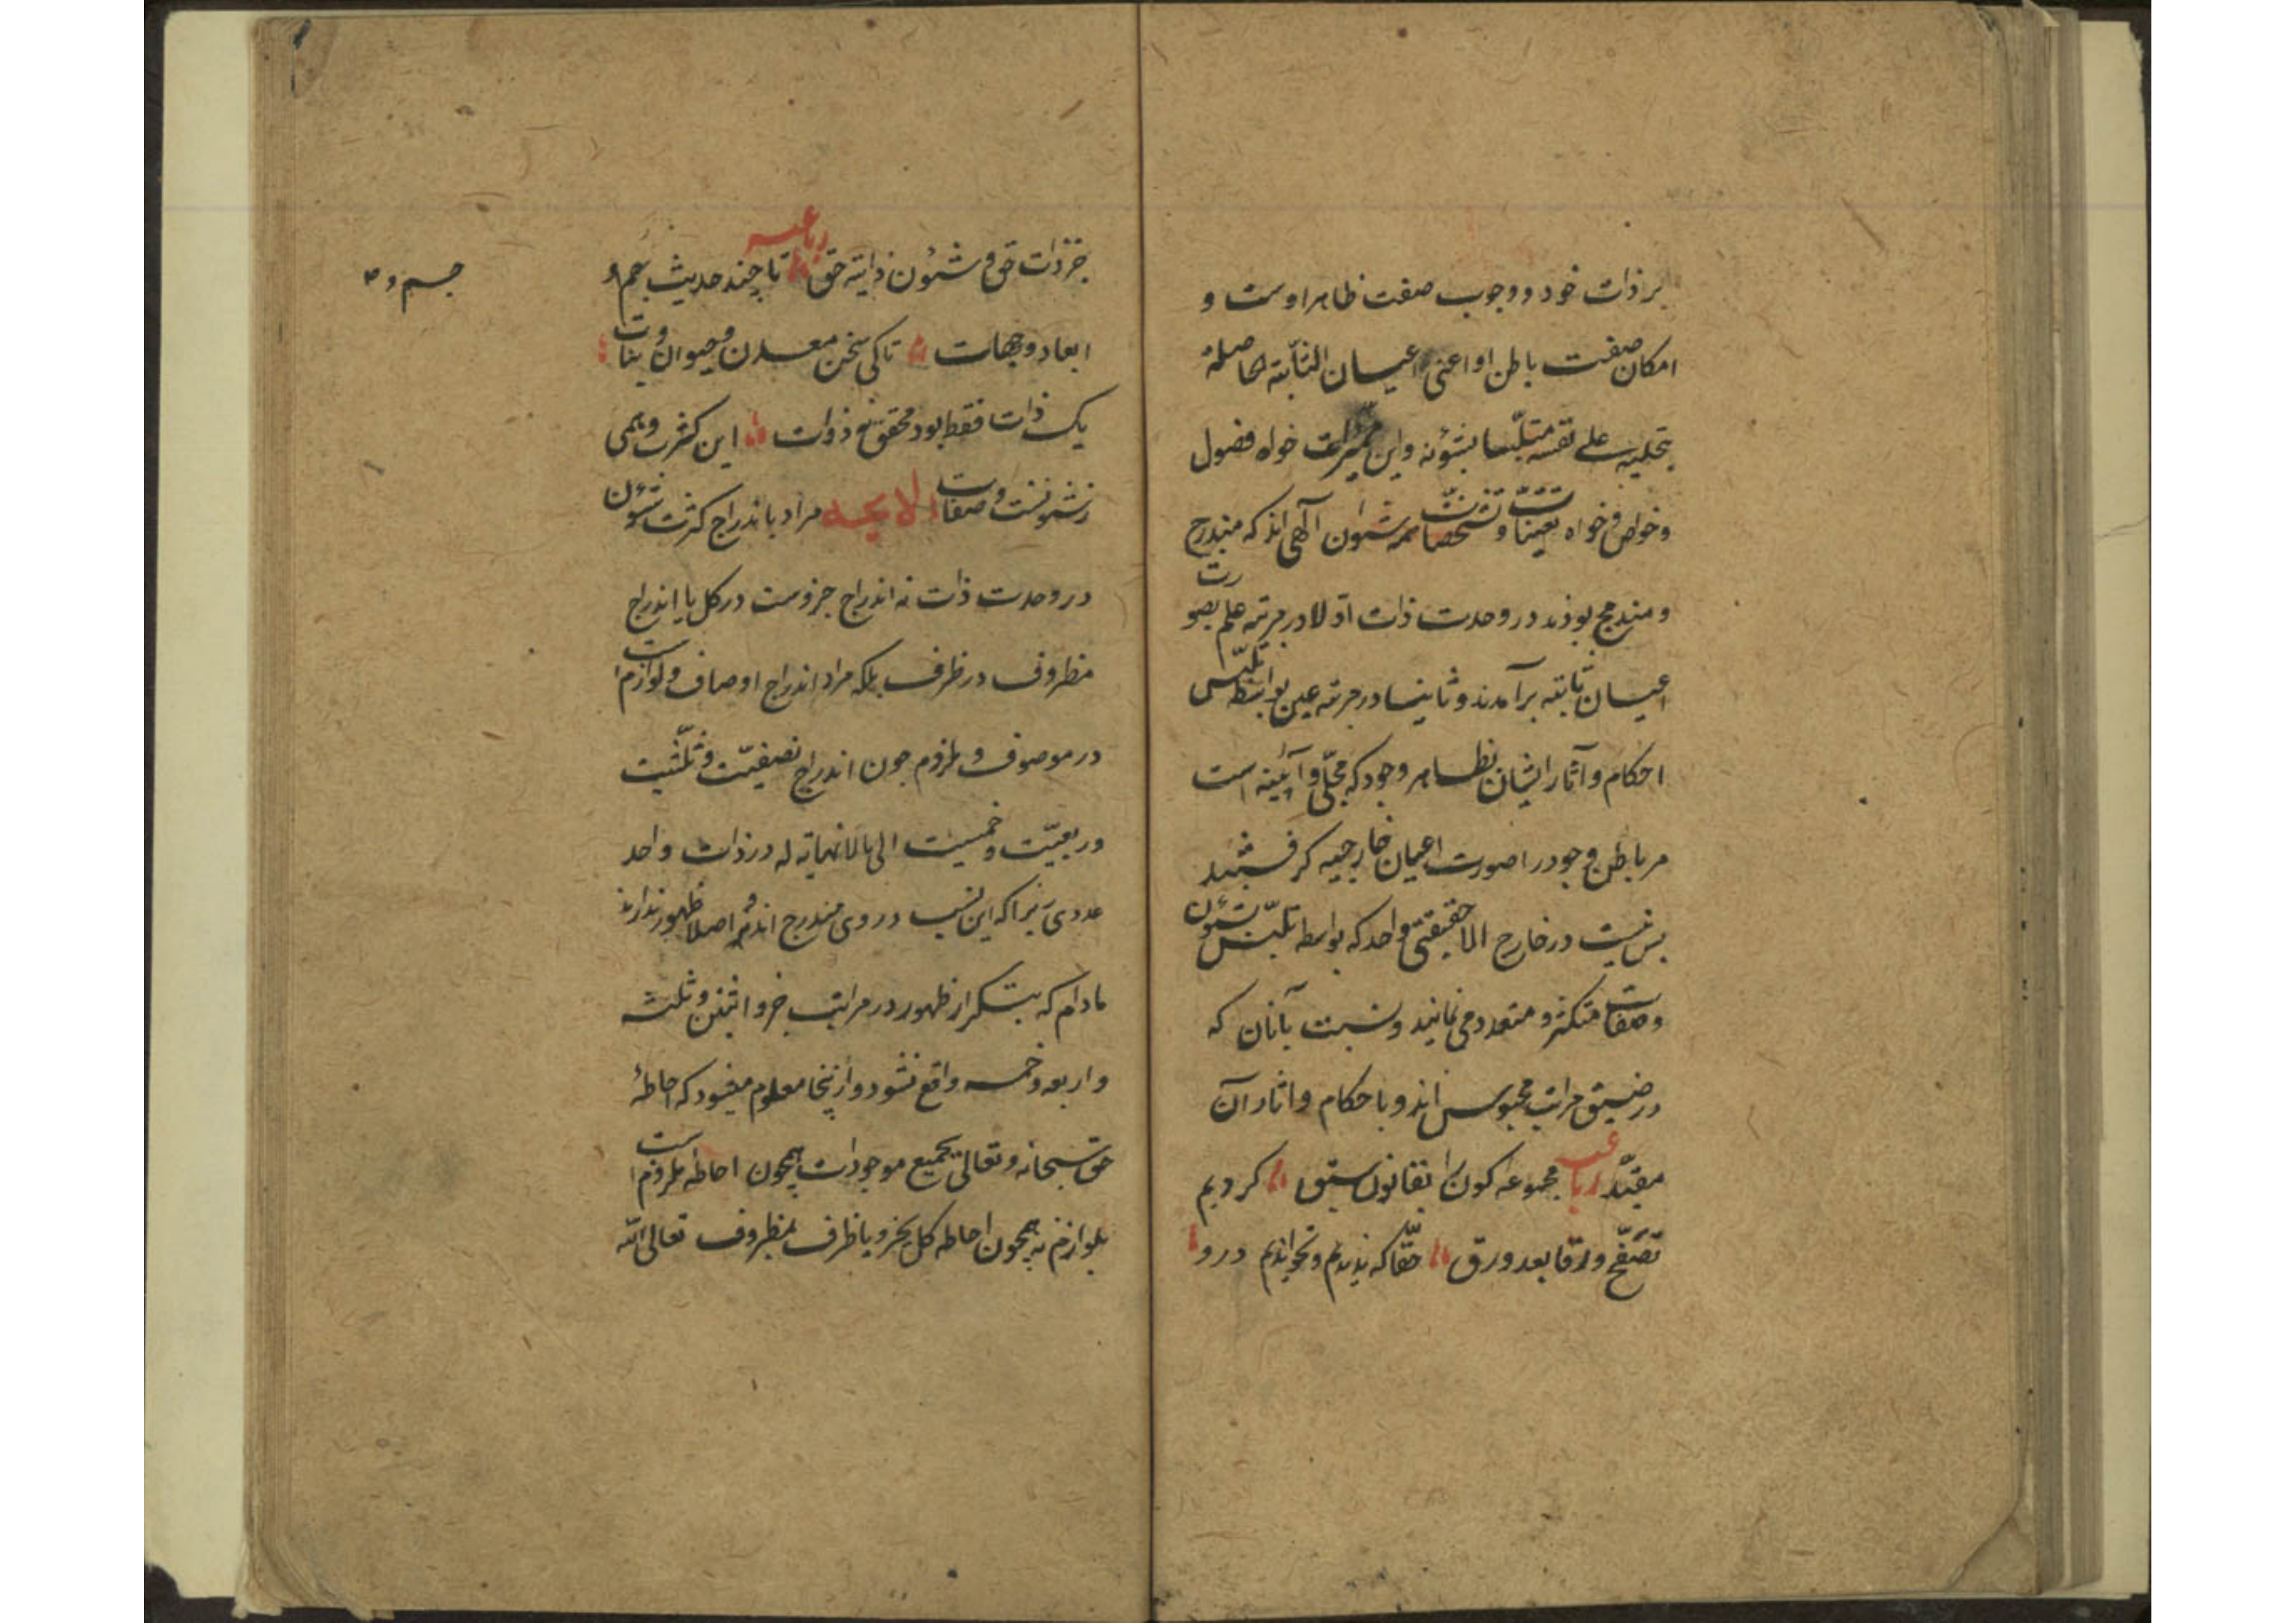 بر ذات خود و وجوب صفت ظاهر اوست و
امکان صفت باطن او اعنی اعیان الثابته الحاصلة
بتجلیه علی نفسه متلبسا بشؤنه واین ممیزات خواه فصول
وخواص وخواه تعینات وتشخصات همه شئون الهی اند که مندرج
و مندمج بودند در وحدت ذات اولا در مرتبه علم بصورت
اعیان ثابته برآمدند و ثانیا در مرتبه عین بواسطه تلبس
احکام و آثار ایشان بظاهر وجود که مجلی و آیینه است
مر باطن وجود را صورت اعیان خارجیه گرفتند
پس نیست در خارج الا حقیقتی واحد که بواسطه تلبس بشئون
وصفات متکثر و متعدد می نماید ونسبت بآنان که
در ضیق مراتب محبوس اند و باحکام و اثار آن
مقید رباعیه مجموعه کون را بقانون سبق کردیم
تصفح ورقا بعد ورق حقا که ندیدیم ونخواندیم درو
جز ذات حق و شئون ذاتیه حق رباعیه تا چند حدیث جسم و
ابعاد وجهات تا کی سخن معدن وحیوان ونبات
یک ذات فقط بود محقق نه ذوات این کثرت وهمی
ز شئونست وصفات لایحه مراد باندراج کثرت شئون
در وحدت ذات نه اندراج جزوست در کل یا اندراج
مظروف در ظرف بلکه مراد اندراج اوصاف ولوازم است
در موصوف و ملزوم چون اندراج نصفیت وثلثیت
وربعیت وخمسیت الی مالانهایة له در ذات واحد
عددی زیرا که این نسب در وی مندرج اند و اصلا ظهور ندارند
مادام که بتکرار ظهور در مراتب جزو اثنین وثلثه
واربعه وخمسه واقع نشود و ازینجا معلوم میشود که احاطهٔ
حق سبحانه وتعالی بجمیع موجودات همچون احاطه ملزوم است
بلوازم نه همچون احاطه کل بجزو یا ظرف بمظروف تعالی الله
جسم و